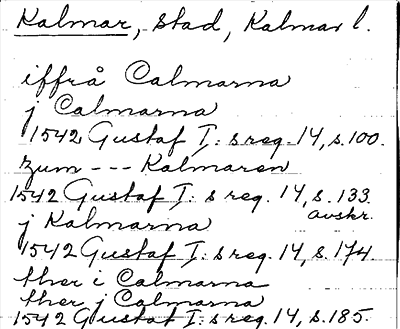 Kalmar, stad, Kalmar l.
iffrå Calmarna
j Calmarna
1542 Gustaf I: s reg. 14, s. 100.
zum --- Kalmaren
1542 Gustaf I: s reg. 14, s. 133.
avskr.
j Kalmarna
1542 Gustaf I: s reg. 14, s. 174.
ther i Calmarna
ther j Calmarna
1542 Gustaf I: s reg. 14, s. 185.